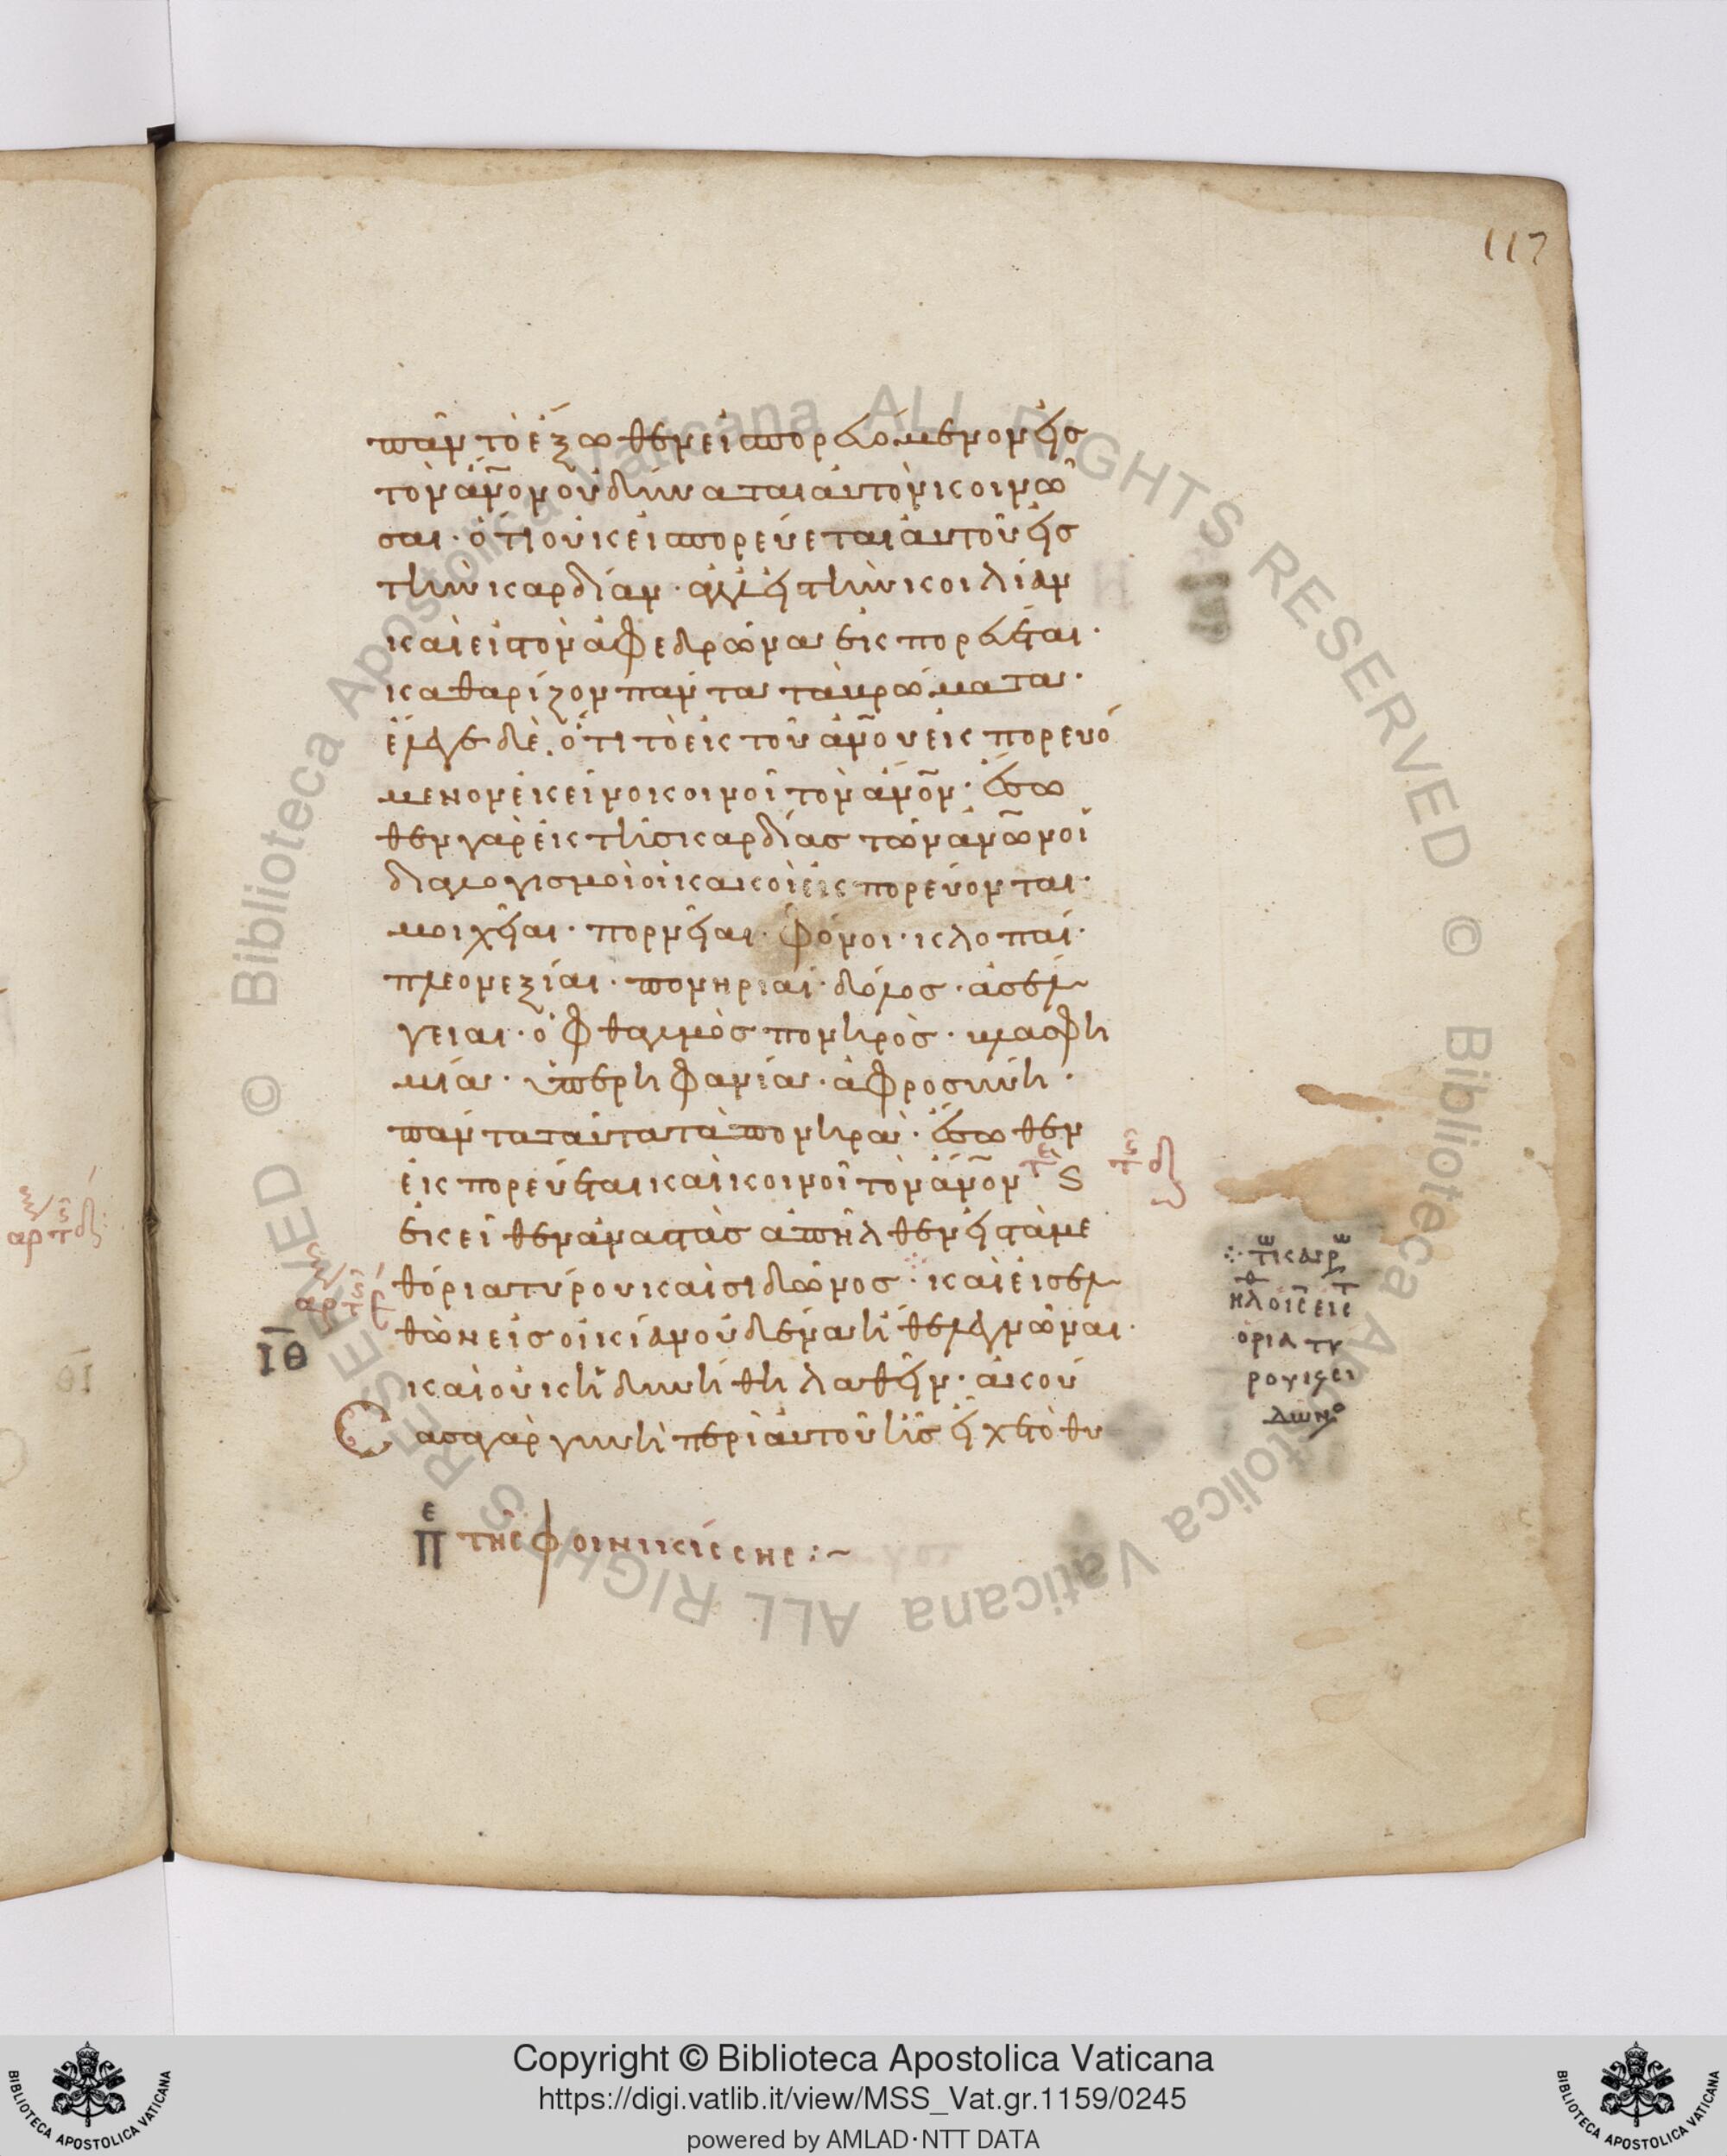 117
πᾶν τὸ ἔξωθεν εἰσπορευόμενον εἰς
τὸν ἄν̅ον οὐ δύναται αὐτὸν κοινῶ
σαι· ὅτι οὐκ εἰσπορεύεται αὐτοῦ εἰς
τὴν καρδίαν· ἀλλ εἰς τὴν κοιλίαν
καὶ εἰς τὸν ἀφεδρῶνα ἐκπορεύεται·
καθαρίζον πάντα τὰ βρώματα·
ἔλεγε δὲ, ὅτι τὸ ἐκ τοῦ ἀν̅ου ἐκπορευό
μενον ἐκεῖνο κοινοῖ τὸν ἄν̅ον· ἔσω
θεν γὰρ ἐκ τῆς καρδίας τῶν ἀν̅ων οἱ
διαλογισμοὶ οἱ κακοὶ ἐκπορεύονται·
μοιχεῖαι· πορνεῖαι· φόνοι· κλοπαί·
πλεονεξίαι· πονηρίαι· δόλος· ἀσέλ
γειαι· ὀφθαλμὸς πονηρὸς· βλασφη
μία· ὑπερηφανία· ἀφροσύνη·
πάντα ταῦτα τὰ πονηρὰ· ἔσωθεν
ἐκπορεύεται καὶ κοινοῖ τὸν ἄν̅ον
ἐκεῖθεν ἀναστὰς ἀπῆλθεν εἰς τὰ με
θόρια τύρου καὶ σιδῶνος· καὶ εἰσελ
θὼν εἰς οἰκίαν οὐδένα ἤθελε γνῶναι·
ΙΘ
καὶ οὐκ ἠδυνήθη λαθεῖν· ἀκού
Σασα γὰρ γυνὴ περὶ αὐτοῦ ἧς εἶχε τὸ θυ
πε τῆς φοινικίσσης :~
τω κ̅ αιρω
ηλθ ο ις̅ εις τ
ορια τυ
ρου κ σι
δωνο
Copyright © Biblioteca Apostolica Vaticana
https://digi.vatlib.it/view/MSS_Vat.gr.1159/0245
powered by AMLAD·NTT DATA
BIBLIOTECA APOSTOLICA VATICANA
BIBLIOTECA APOSTOLICA VATICANA
© Biblioteca Apostolica Vaticana ALL RIGHTS RESERVED
© Biblioteca Apostolica Vaticana ALL RIGHTS RESERVED